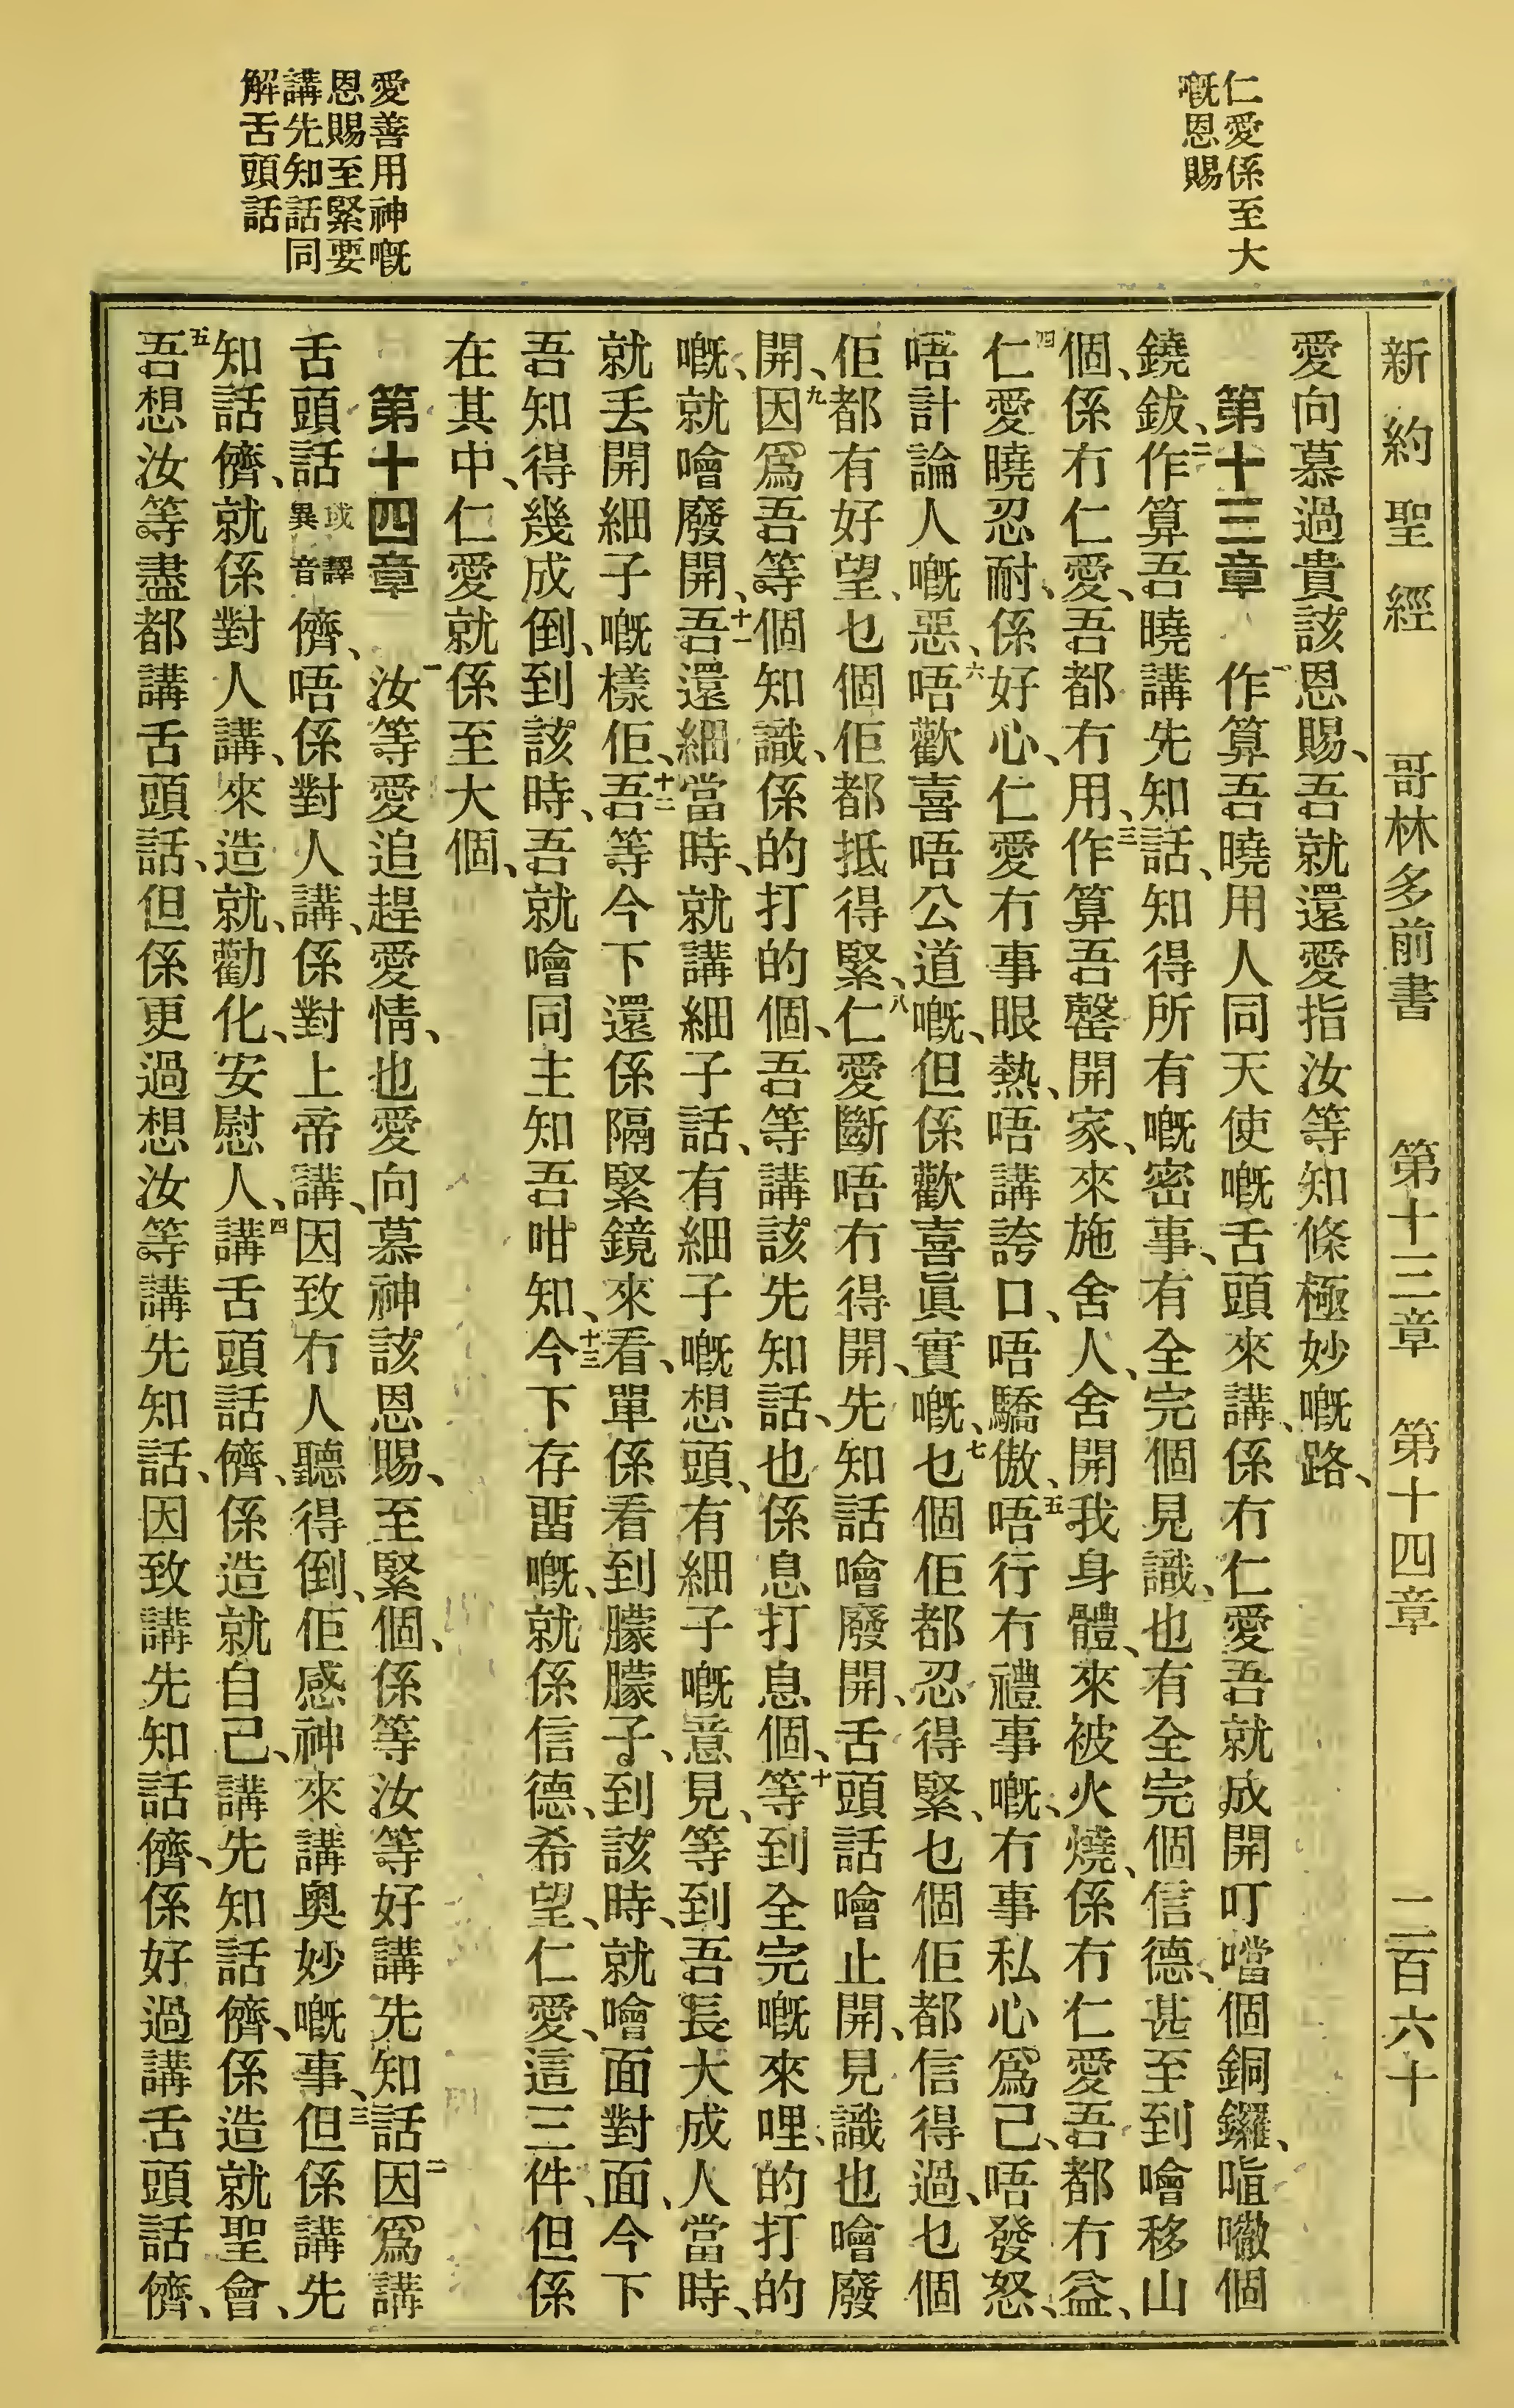 新約聖經　哥林多前書　第十三章　第十四章　二百六十
仁愛係至大
嘅恩賜
愛善用神嘅
恩賜至緊要
講先知話同
解舌頭話
愛向慕過貴該恩賜、吾就還愛指汝等知條極妙嘅路、
第十三章　一作算吾曉用人同天使嘅舌頭來講、係冇仁愛吾就成開叮噹個銅鑼、𠵇嘞個
鐃鈸、二作算吾曉講先知話、知得所有嘅密事、有全完個見識、也有全完個信德、甚至到噲移山
個、係冇仁愛、吾都冇用、三作算吾罄開家、來施舍人、舍開我身體、來被火燒、係冇仁愛吾都冇益、
四仁愛曉忍耐、係好心、仁愛冇事眼熱、唔講誇口、唔驕傲、五唔行冇禮事嘅、冇事私心爲己、唔發怒、
唔計論人嘅惡、六唔歡喜唔公道嘅、但係歡喜眞實嘅、七乜個佢都忍得緊、乜個佢都信得過、乜個
佢都有好望、乜個佢都抵得緊、八仁愛斷唔冇得開、先知話噲廢開、舌頭話噲止開、見識也噲廢
開、九因爲吾等個知識、係的打的個、吾等講該先知話、也係息打息個、十等到全完嘅來哩、的打的
嘅、就噲廢開、十一吾還細當時、就講細子話、有細子嘅想頭、有細子嘅意見、等到吾長大成人當時、
就丟開細子嘅樣佢、十二吾等今下還係隔緊鏡來看、單係看到朦朦子、到該時、就噲面對面、今下
吾知得幾成倒、到該時、吾就噲同主知吾咁知、十三今下存畱嘅、就係信德、希望、仁愛、這三件、但係
在其中、仁愛就係至大個、
第十四章　一汝等愛追趕愛情、也愛向慕神該恩賜、至緊個、係等汝等好講先知話、二因爲講
舌頭話或譯異音儕、唔係對人講、係對上帝講、因致冇人聽得倒、佢感神來講奧妙嘅事、三但係講先
知話儕、就係對人講、來造就、勸化、安慰人、四講舌頭話儕、係造就自己、講先知話儕、係造就聖會、
五吾想汝等盡都講舌頭話、但係更過想汝等講先知話、因致講先知話儕、係好過講舌頭話儕、